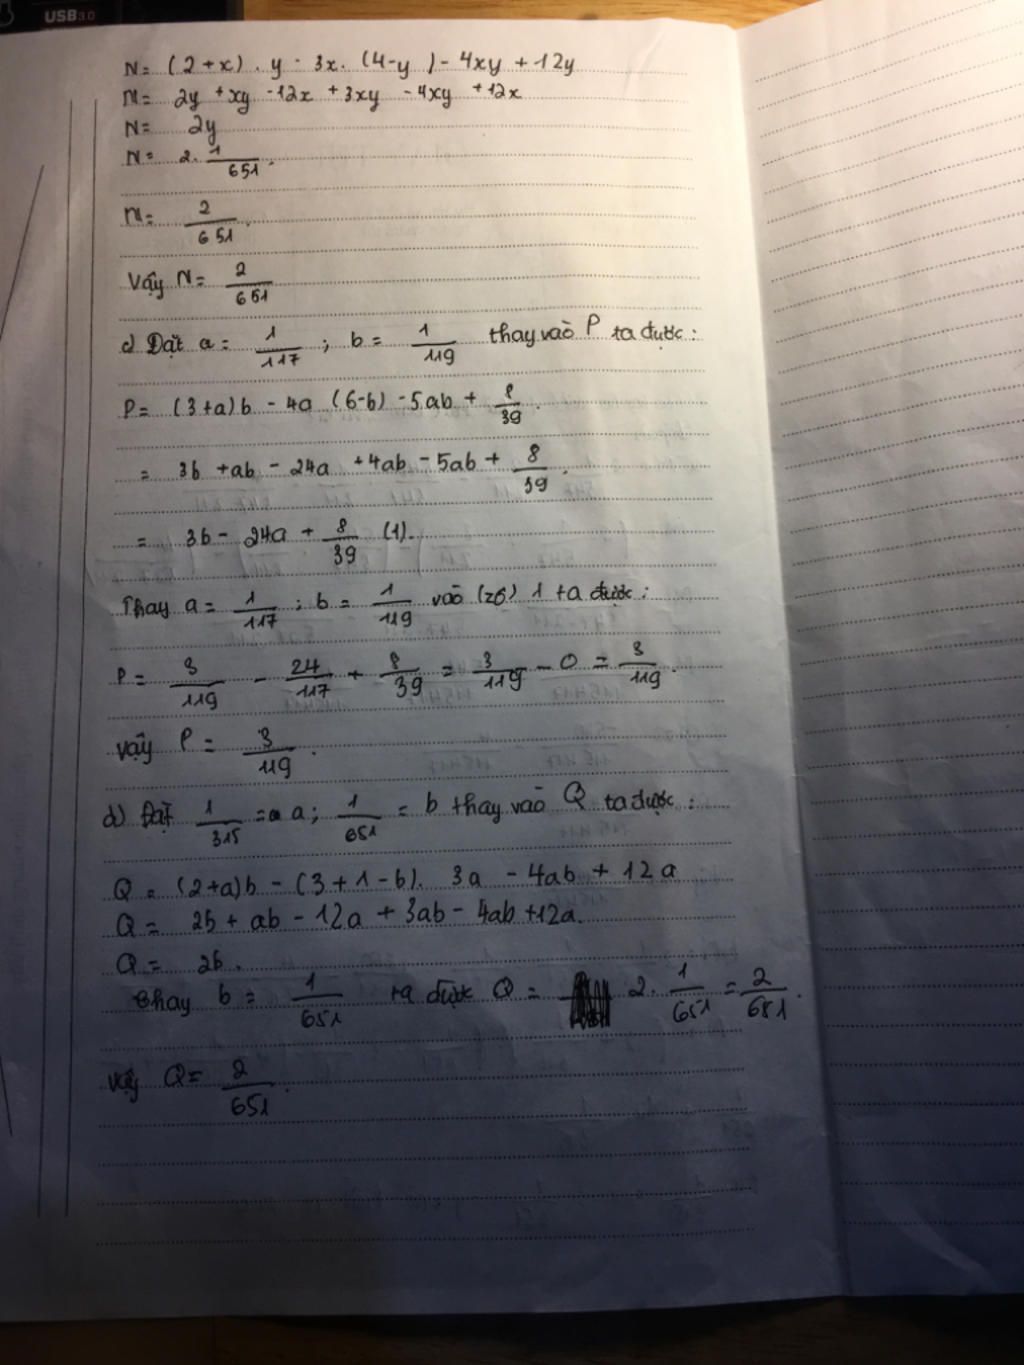 USB3.0
N= (2+x).y - 3x.(4-y) - 4xy + 12y
N= 2y +xy -12x +3xy - 4xy +12x
N= 2y
N= 2. 1/651.
N= 2/651.
Vậy N= 2/651
c) Đặt a= 1/117; b= 1/119 thay vào P ta được:
P= (3+a)b - 4a (6-b) -5ab + 8/39.
= 3b +ab - 24a +4ab - 5ab + 8/39.
= 3b - 24a + 8/39 (1).
Thay a= 1/117; b= 1/119 vào 1 ta được:
P= 3/119 - 24/117 + 8/39 = 3/119 - 0 = 3/119.
vậy P= 3/119.
d) Đặt 1/315 = a; 1/651 = b thay vào Q ta được:
Q= (2+a)b - (3+1-b). 3a - 4ab + 12a
Q= 2b + ab - 12a + 3ab - 4ab +12a.
Q= 2b.
thay b= 1/651 ta được Q= 2. 1/651 = 2/651.
Vậy Q= 2/651.